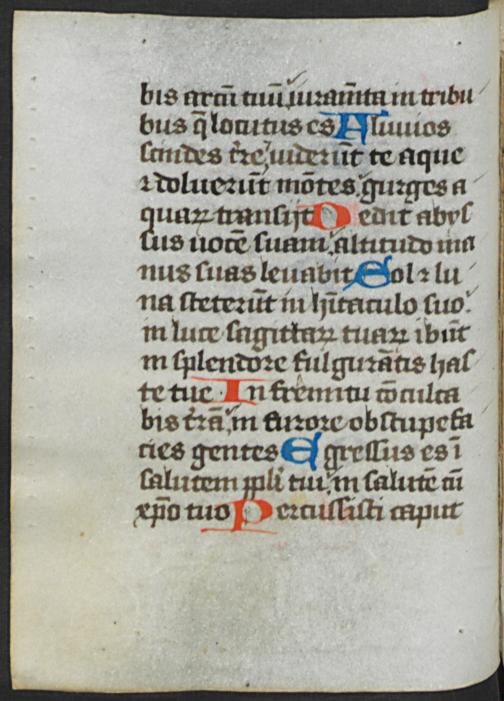 bis arcū tuū, iuramīta in tribu
bus q̄ locutus es Aluuios
scindes tr̄e, uiderūt te aque
⁊ doluerūt mōtes, gurges a
quaꝝ transijt Dedit abys
sus uocē suam, altitudo ma
nus suas leuabit Sol ⁊ lu
na steterūt in hītaculo suo,
in luce sagittaꝝ tuaꝝ ibūt
in splendore fulgurātis has
te tue. In fremitu cōculca
bis tr̄ā, in furore obstupefa
cies gentes Egressus es ī
salutem ppl̄i tui, in salutē cū
xp̄o tuo Percussisti caput